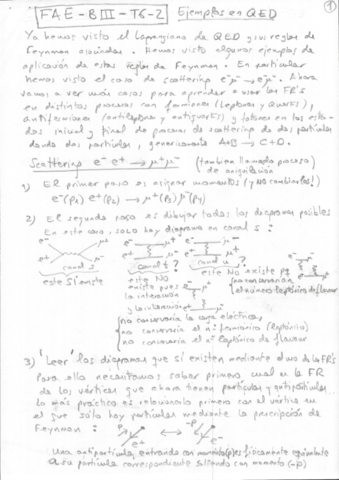 FAE-BIII-T6-2 Ejemplos en QED 1
Ya hemos visto el Lagrangiano de QED y sus reglas de
Feynman asociadas. Hemos visto algunos ejemplos de
aplicación de estas reglas de Feynman. En particular
hemos visto el caso de scattering e⁻μ⁻ → e⁻μ⁻. Ahora
vamos a ver más casos para aprender a usar las FR's
en distintos procesos con fermiones (Leptones y Quarks),
antifermiones (antileptones y antiquarks) y fotones en los esta-
dos inicial y final de procesos de scattering de dos partículas
dando dos partículas, genéricamente A+B → C+D.
Scattering e⁻ e⁺ → μ⁺μ⁻ (también llamado proceso
de aniquilación)
1) El primer paso es asignar momentos (y NO cambiarlos!)
2) El segundo paso es dibujar todos los diagramas posibles
En este caso, solo hay diagrama en canal s:
e⁻ μ⁻ e⁻ μ⁺ e⁻ μ⁻
e⁺ e⁺ μ⁻ e⁺ μ⁺
canal s canal t? canal u?
este SI existe este NO este NO existe pq
existe pues no conservaría
la interacción el número leptónico de flavor
y la interacción
no conservaría la carga eléctrica,
no conservaría el nº fermiónico (leptónico)
no conservaría el nº leptónico de flavor
3) 'Leer' los diagramas que sí existen mediante el uso de las FR's
Para ello necesitamos saber primero cual es la FR
de los vértices que ahora tienen partículas y antipartículas
Lo más práctico es relacionarlo primero con el vértice en
el que sólo hay partículas mediante la prescripción de
Feynman:
P e⁺ -P e⁻
Una antipartícula entrando con momento (p) es físicamente equivalente
a su partícula correspondiente saliendo con momento (-p)